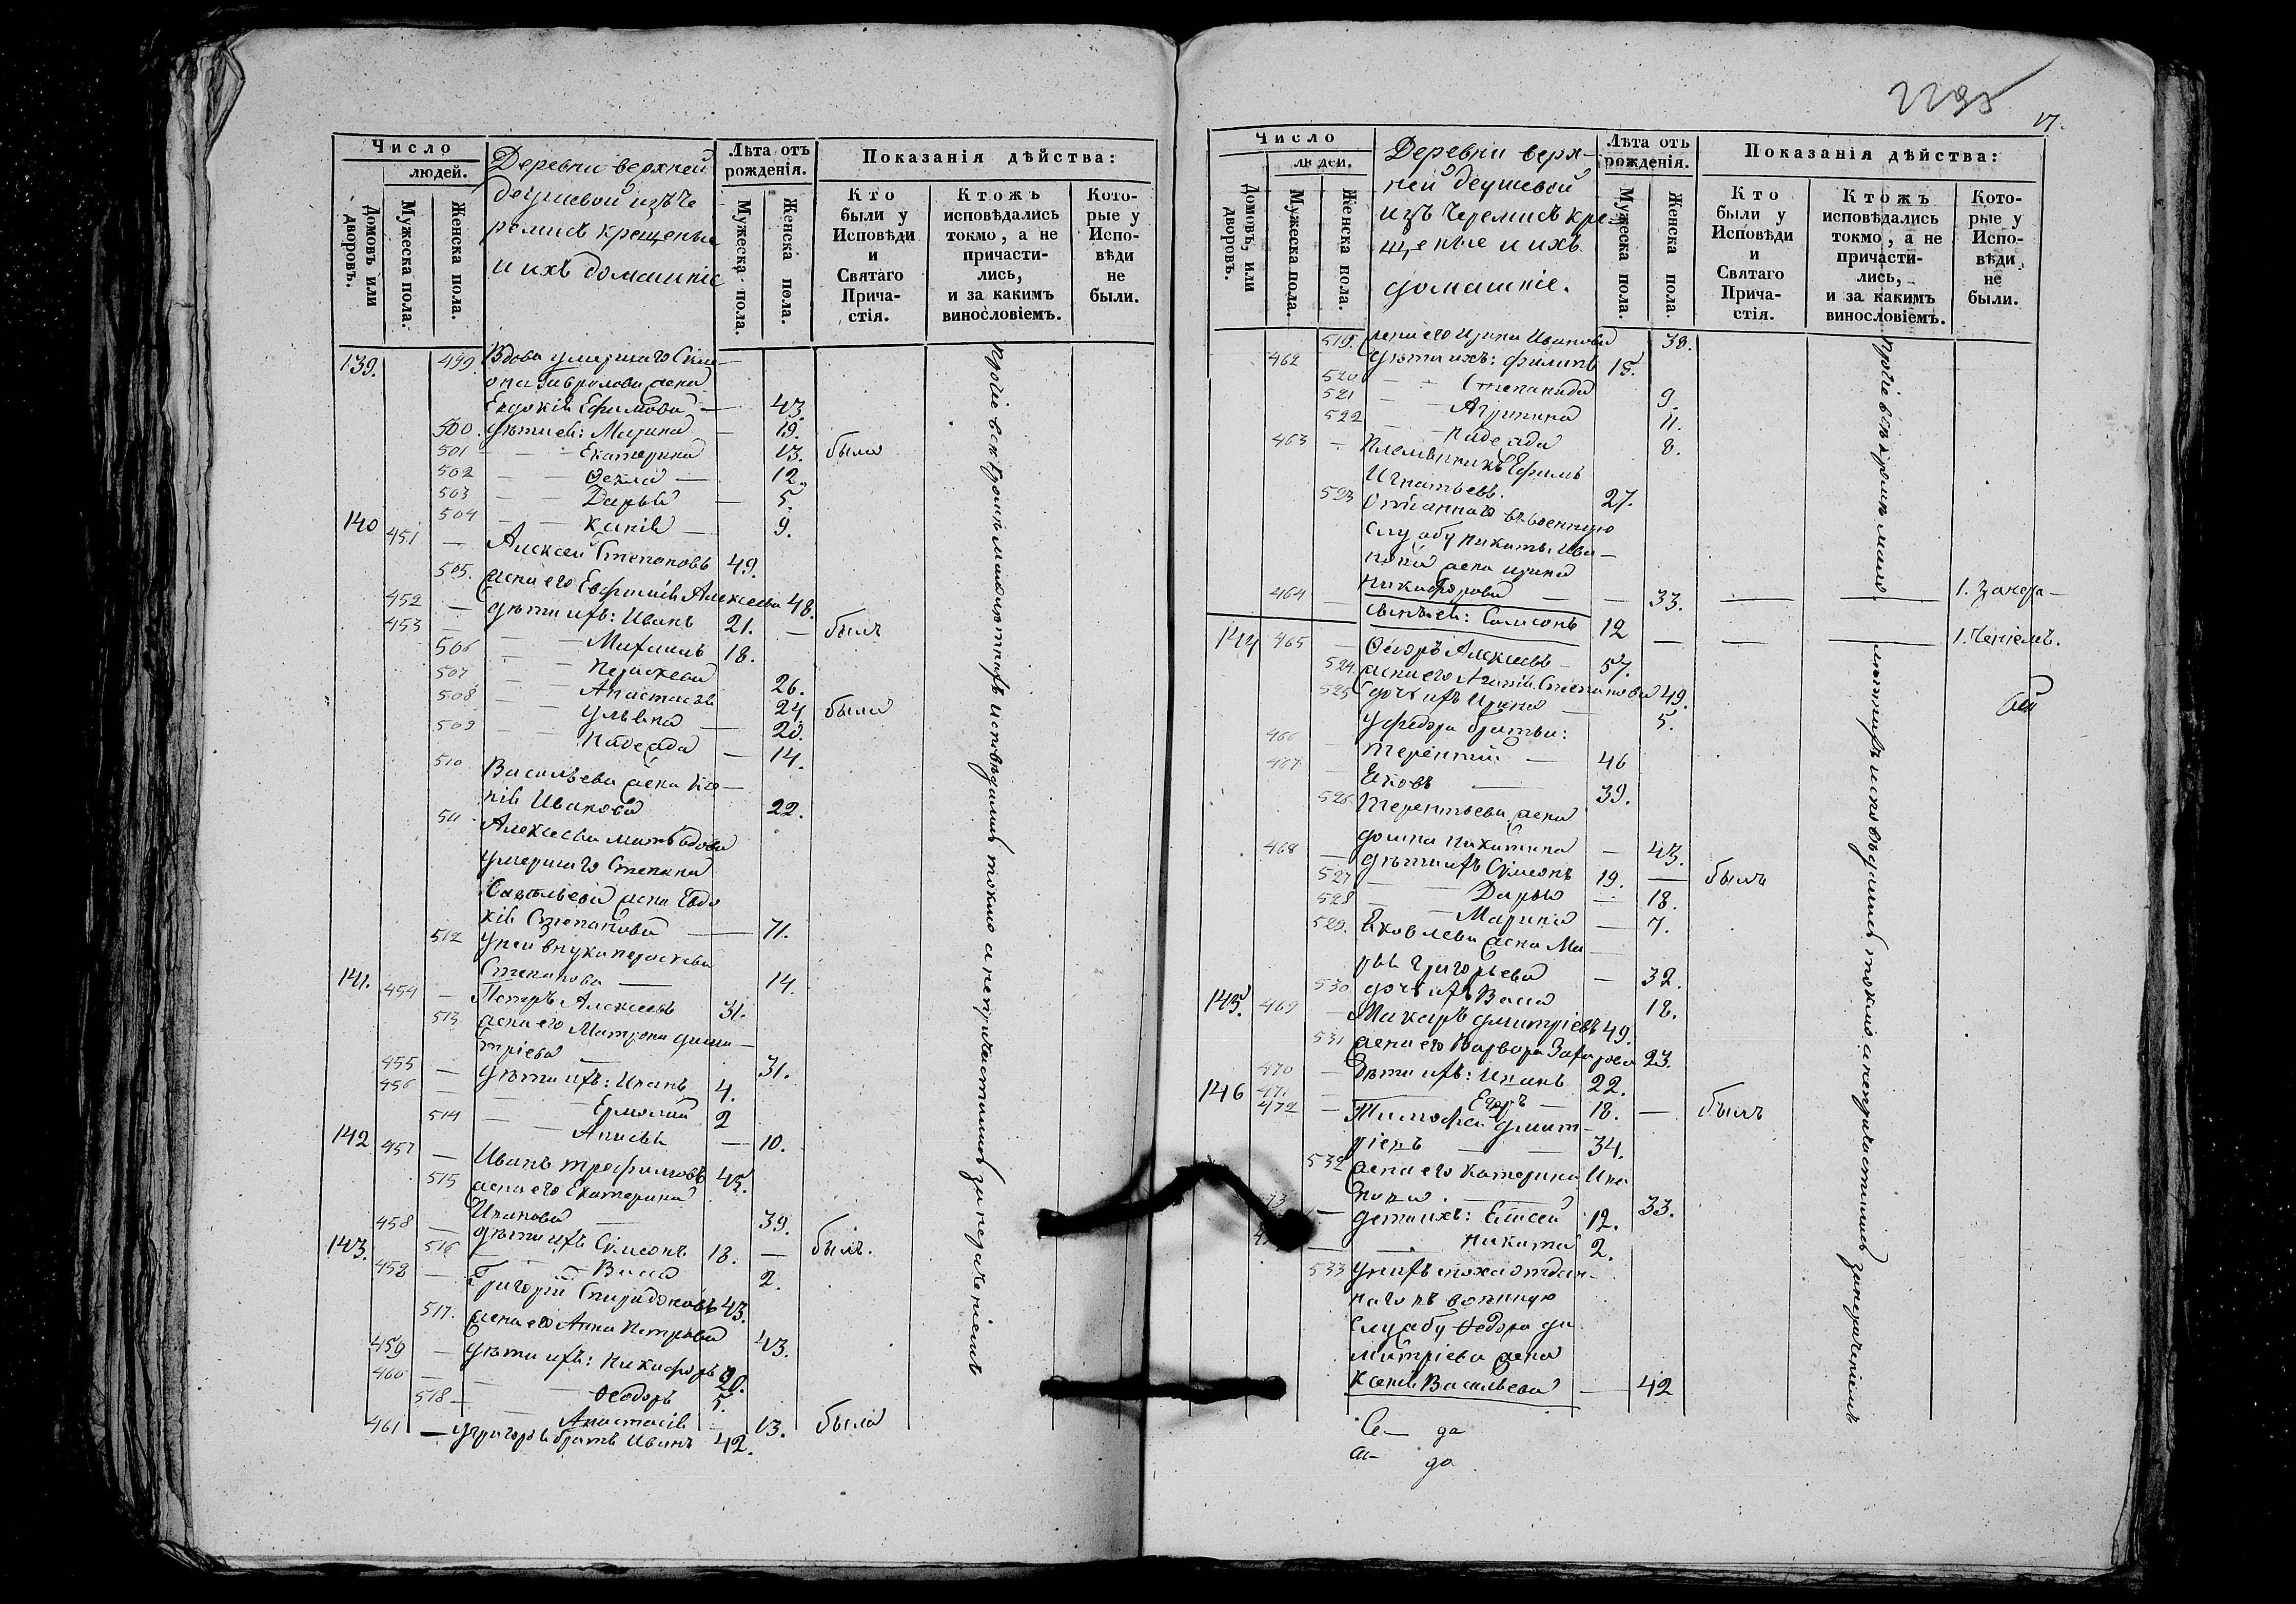 Число
людей.
Домовъ или дворовъ.
Мужеска пола.
Женска пола.
Деревни верхней
деушевой изъ че
ремисъ крещеные
и ихъ домашніе
Лѣта отъ рожденія.
Мужеска пола.
Женска пола.
Показанія дѣйства:
Кто были у Исповѣди и Святаго Прича-стія.
Ктожъ исповѣдались токмо, а не причасти-лись, и за какимъ винословіемъ.
Кото-рые у Испо-вѣди не были.
139. 499. Вдова умершаго
жена
Евдокія Ефимова — 43.
500. Дѣти ея: Марина — 19.
501 — — Екатерина 13. была
502 — — Ѳекла — 12.
503 — — Дарья — 5.
504 — — Ксенія — 9.
140 451 — Алексей Степановъ 49.
505. жена его Евфимія Алексеева 48.
452 — дѣти ихъ: Иванъ 21. — былъ
453 — — Михаилъ 18.
506 — — Параскева 26.
507 — — Анастасія 24 была
508 — — Ульяна — 20.
509 — — Надежда — 14.
510 Васильева жена Ксе-
нія Иванова 22.
511 Алексеева мать вдова
умершаго Степана
Савельева жена Евдо
кія Степанова — 71.
512 У ней внука Параскева
Степанова — 14.
141. 454 — Петръ Алексеевъ 31.
513 жена его Матрона Дими-
тріева — 31.
455 — Дѣти ихъ: Иванъ 4.
456 — — Ермолай 2
514 — — Анисья — 10.
142 457 — Иванъ Трофимовъ 45.
515 жена его Екатерина
Иванова — 39.
458 — дѣти ихъ Симеонъ 18. — былъ.
516 — — Васса 2.
143. 458 — Григорій Спиридоновъ 43.
517. жена его Анна Петрова 43.
459 — дѣти ихъ: Никифоръ 20.
460 — — Ѳеодоръ 5.
518 — — Анастасія 13. была
461 — У Григорья братъ Иванъ 42.
Прочіе всѣ кромѣ малолѣтнихъ исповѣдались токмо а не причастились за нераченіемъ
2295
17.
Число
людей.
Домовъ, или дворовъ.
Мужеска пола.
Женска пола.
Деревни верх-
ней деушевой
изъ черемисъ кре-
щеные и ихъ
домашніе.
Лѣта отъ рожденія.
Мужеска пола.
Женска пола.
Показанія дѣйства:
Кто были у Исповѣди и Святаго Прича-стія.
Ктожъ исповѣдались токмо, а не причасти-лись, и за какимъ винословіемъ.
Кото-рые у Испо-вѣди не были.
519. жена его Ирина Иванова 38.
462 Дѣти ихъ: Филипъ 15.
520 — — Степанида 9.
521 — — Агрипина 11.
522 — — Надежда 8.
463 — Племянникъ Ефимъ
Игнатьевъ. 27.
523 Отданнаго въ военную
службу Никиты Ива-
нова жена Ирина
Никифорова — — 33.
464 — сынъ ея: Самсонъ 12 — — — 1.
144 465 — Ѳеодоръ Алексеевъ — 57.
524 жена его Агапія Степанова 49.
525 дочь ихъ Ирина 5.
У Федора братья:
466 — Терентій — 46
467 — Яковъ — 39.
526 Терентьева жена
Домна Никитина — 43.
468 — дѣти ихъ Симеонъ 19. — былъ
527 — — Дарья — 18.
528 — — Марина — 7.
529. Яковлева жена Ма
рья Григорьева — 32.
530 дочь ихъ Васса 18.
145. 469 — Макаръ Димитріевъ 49.
531 жена его Варвара Захарова 23.
470 — Дѣти ихъ: Иванъ 22.
471. — — Егоръ — 18. — былъ
146 472 — Тимофей Димит-
ріевъ — — 34.
532 жена его Катерина Ива
нова. — 33.
— дети ихъ: Елисей 12.
— — Никита 2.
533 У нихъ сноха отдан-
наго въ военную
службу Ѳедора Ди
митріева жена
Ксенія Васильева — 42
Прочіе всѣ кромѣ мало
лѣтнихъ исповѣдались токмо а не причастились за нераченіемъ